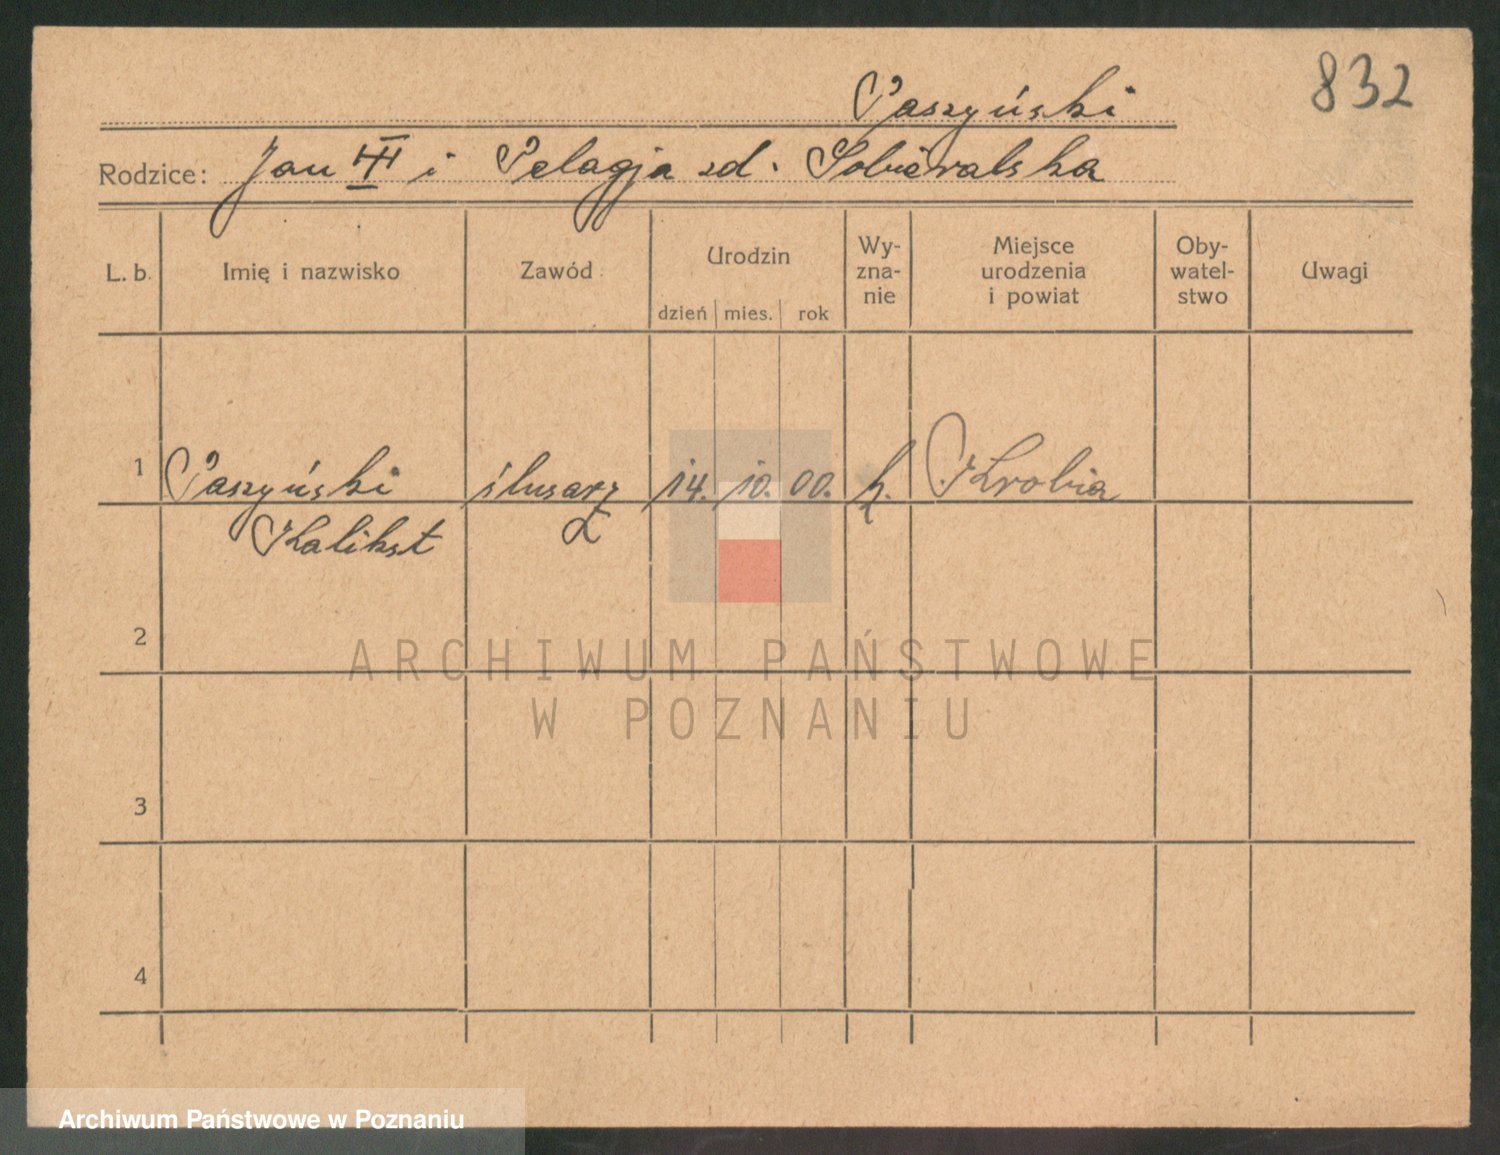 832
Paszyński
Rodzice: Jan III i Pelagja zd.
L. b. Imię i nazwisko Zawód Urodzin dzień mies. rok Wy-zna-nie Miejsce urodzenia i powiat Oby-watel-stwo Uwagi
1 Paszyński ślusarz 14. 10. 00. k. Krobia
Kalikst
2
ARCHIWUM PAŃSTWOWE
W POZNANIU
3
4
Archiwum Państwowe w Poznaniu